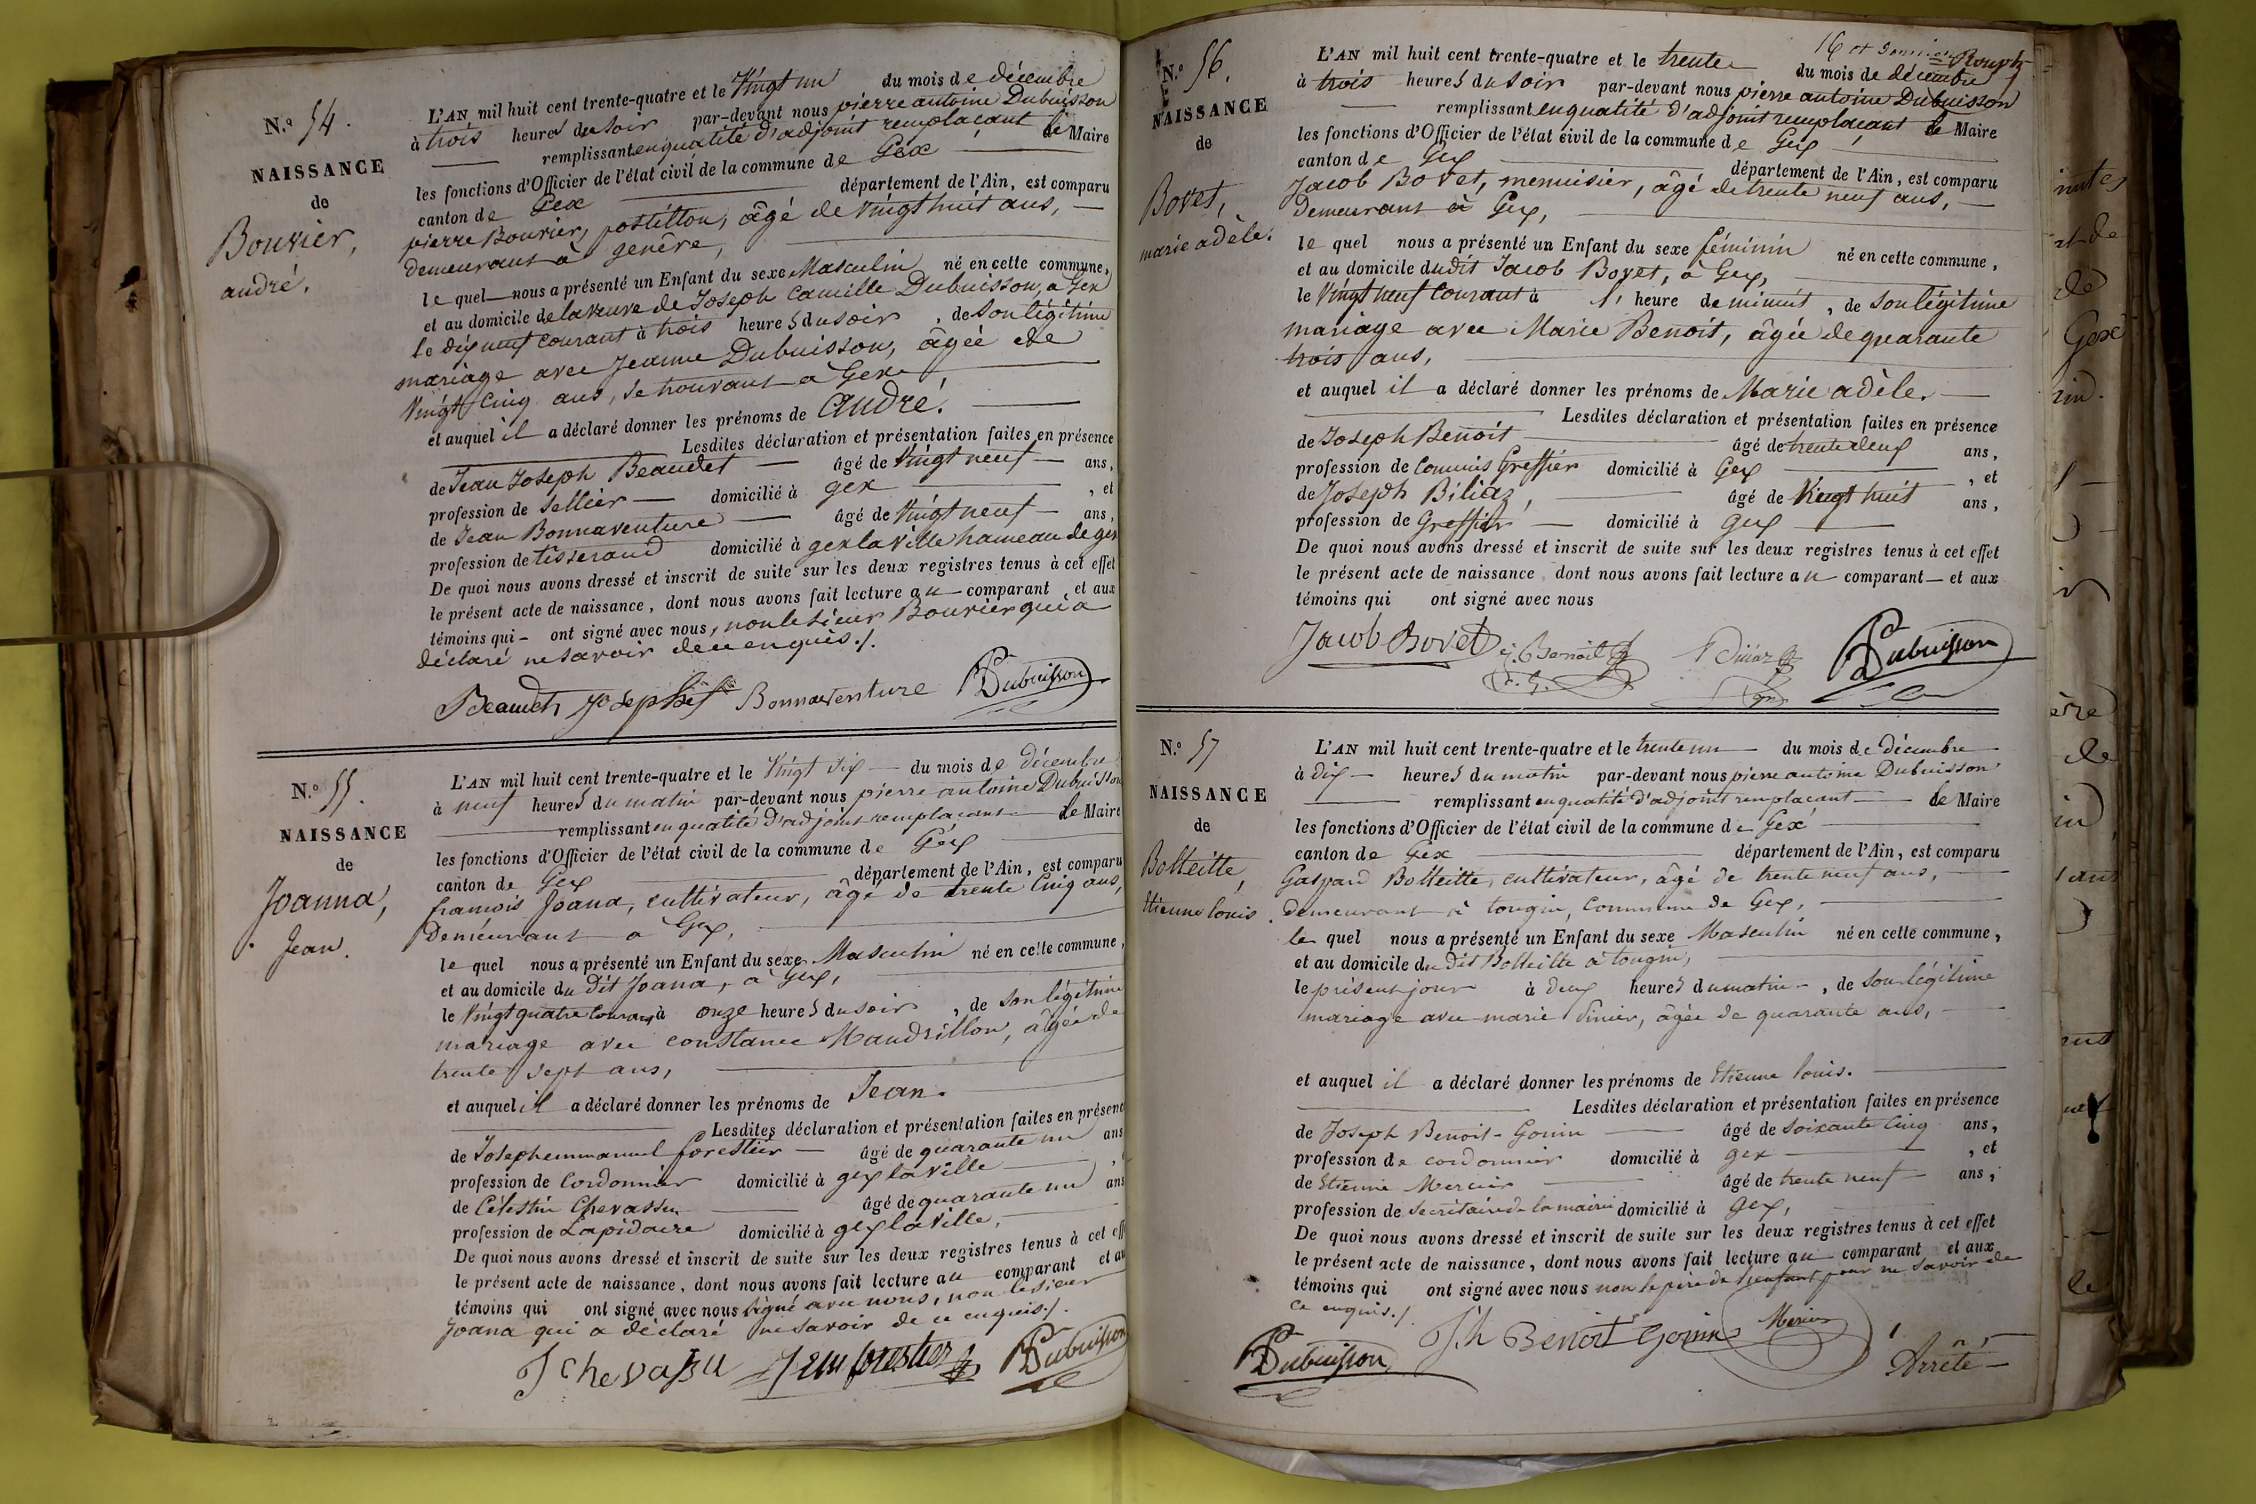 N.º 54.
NAISSANCE
de
Bouvier,
andré.
L'AN mil huit cent trente-quatre et le Vingt un du mois de décembre
à trois heures du soir par-devant nous pierre antoine Dubuisson
remplissant en qualité d'adjoint remplaçant le Maire
les fonctions d'Officier de l'état civil de la commune de Gex
canton de Gex département de l'Ain, est comparu
pierre Bouvier, postillon, âgé de vingt huit ans,
demeurant à genève,
le quel nous a présenté un Enfant du sexe Masculin né en cette commune,
et au domicile de la veuve de Joseph Camille Dubuisson, a Gex
le dix neuf courant à trois heures du soir, de son légitime
mariage avec Jeanne Dubuisson, âgée de
Vingt Cinq ans, se trouvant à Gex
et auquel il a déclaré donner les prénoms de André.
Lesdites déclaration et présentation faites en présence
de Jean Joseph Beaudet âgé de Vingt neuf ans,
profession de sellier domicilié à gex, et
de Jean Bonnaventure âgé de Vingt neuf ans,
profession de tisserand domicilié à gex la ville hameau de gex
De quoi nous avons dressé et inscrit de suite sur les deux registres tenus à cet effet
le présent acte de naissance, dont nous avons fait lecture au comparant, et aux
témoins qui ont signé avec nous, non le sieur Bouvier qui a
déclaré ne savoir de ce enquis./.
Beaudet Joseph Bonnaventure PDubuisson
N.º 55.
NAISSANCE
de
Joanna,
Jean.
L'AN mil huit cent trente-quatre et le Vingt six du mois de décembre
à neuf heures du matin par-devant nous pierre antoine Dubuisson
remplissant en qualité d'adjoint remplacant le Maire
les fonctions d'Officier de l'état civil de la commune de Gex
canton de Gex département de l'Ain, est comparu
francois Joana, cultivateur, âgé de trente Cinq ans,
Demeurant a Gex,
le quel nous a présenté un Enfant du sexe Masculin né en cette commune,
et au domicile du dit Joana, à Gex,
le Vingt quatre courant à onze heures du soir, de son légitime
mariage avec constance Mandrillon, âgée de
trente sept ans,
et auquel il a déclaré donner les prénoms de Jean.
Lesdites déclaration et présentation faites en présence
de Joseph emmanuel forestier âgé de quarante un ans
profession de Cordonnier domicilié à gex la ville
de Célestin Chevassu âgé de quarante un ans
profession de Lapidaire domicilié à gex la ville,
De quoi nous avons dressé et inscrit de suite sur les deux registres tenus à cet eff
le présent acte de naissance, dont nous avons fait lecture au comparant et au
témoins qui ont signé avec nous signé avec nous, non le sieur
Joana qui a déclaré ne savoir de ce enquis./.
J Chevassu J em forestier PDubuisson
16 et dernier
N.º 56.
NAISSANCE
de
Bovet,
marie adèle.
L'AN mil huit cent trente-quatre et le trente du mois de décembre
à trois heures du soir par-devant nous pierre antoine Dubuisson
remplissant en qualité d'adjoint remplaçant le Maire
les fonctions d'Officier de l'état civil de la commune de Gex
canton de Gex département de l'Ain, est comparu
Jacob Bovet, menuisier, âgé de trente neuf ans,
Demeurant à Gex,
le quel nous a présenté un Enfant du sexe féminin né en cette commune,
et au domicile dudit Jacob Bovet, à Gex,
le Vingt neuf courant à l' heure de minuit, de son légitime
mariage avec Marie Benoit, âgée de quarante
trois ans,
et auquel il a déclaré donner les prénoms de Marie adèle.
Lesdites déclaration et présentation faites en présence
de Joseph Benoit âgé de trente deux ans,
profession de Commis Greffier domicilié à Gex, et
de Joseph Biliaz, âgé de Vingt huit ans,
profession de Greffier domicilié à gex
De quoi nous avons dressé et inscrit de suite sur les deux registres tenus à cet effet
le présent acte de naissance, dont nous avons fait lecture au comparant et aux
témoins qui ont signé avec nous
Jacob Bovet j. Benoit PDubuisson
N.º 57
NAISSANCE
de
Botteitte,
Etienne louis.
L'AN mil huit cent trente-quatre et le trente un du mois de décembre
à dix heures du matin par-devant nous pierre antoine Dubuisson
remplissant en qualité d'adjoint remplacant le Maire
les fonctions d'Officier de l'état civil de la commune de Gex
canton de Gex département de l'Ain, est comparu
Gaspard Botteitte, cultivateur, âgé de trente neuf ans,
demeurant à tougin, Commune de Gex,
le quel nous a présenté un Enfant du sexe Masculin né en cette commune,
et au domicile du dit Botteitte à tougin,
le présent jour à deux heures du matin, de son légitime
mariage avec marie, âgée de quarante ans,
et auquel il a déclaré donner les prénoms de Etienne louis.
Lesdites déclaration et présentation faites en présence
de Joseph Benoit-Gonin âgé de soixante Cinq ans,
profession de cordonnier domicilié à gex, et
de Etienne Mercier âgé de trente neuf ans,
profession de secrétaire de la mairie domicilié à gex,
De quoi nous avons dressé et inscrit de suite sur les deux registres tenus à cet effet
le présent acte de naissance, dont nous avons fait lecture au comparant et aux
témoins qui ont signé avec nous non le père de l'enfant pour ne savoir de
ce enquis./.
PDubuisson Jh Benoit Gonin Mercier
Arrêté